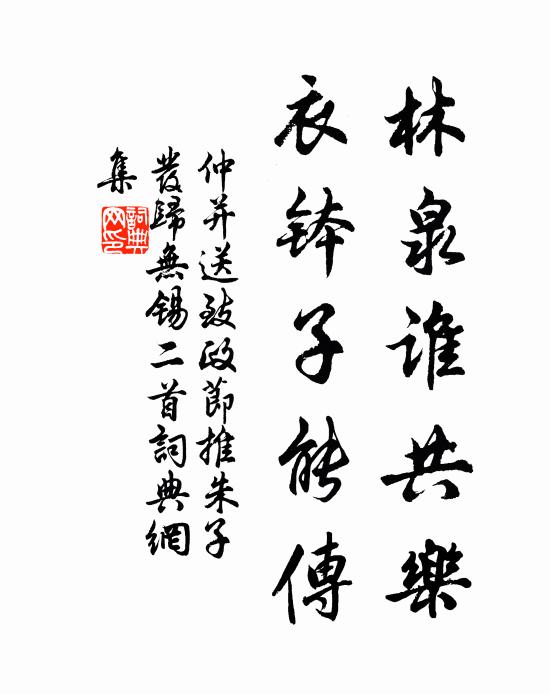 林泉谁共樂
衣钵子能傳
仲并送致政節推朱子
發歸無錫二首詞典網
集
詞典網印